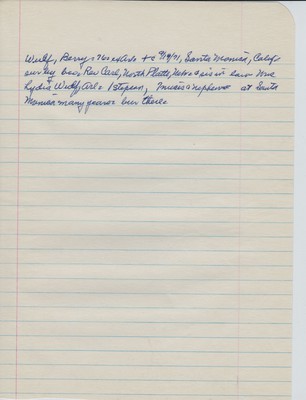 Wulf, Barry 9/14/71, Santa Monica, Calif
surv by bro Rev Carl, North Platte, Nebr sis in law Mrs
Lydia Wulf, 1 stepson, nieces & nephews at Santa
Monica many years bur there